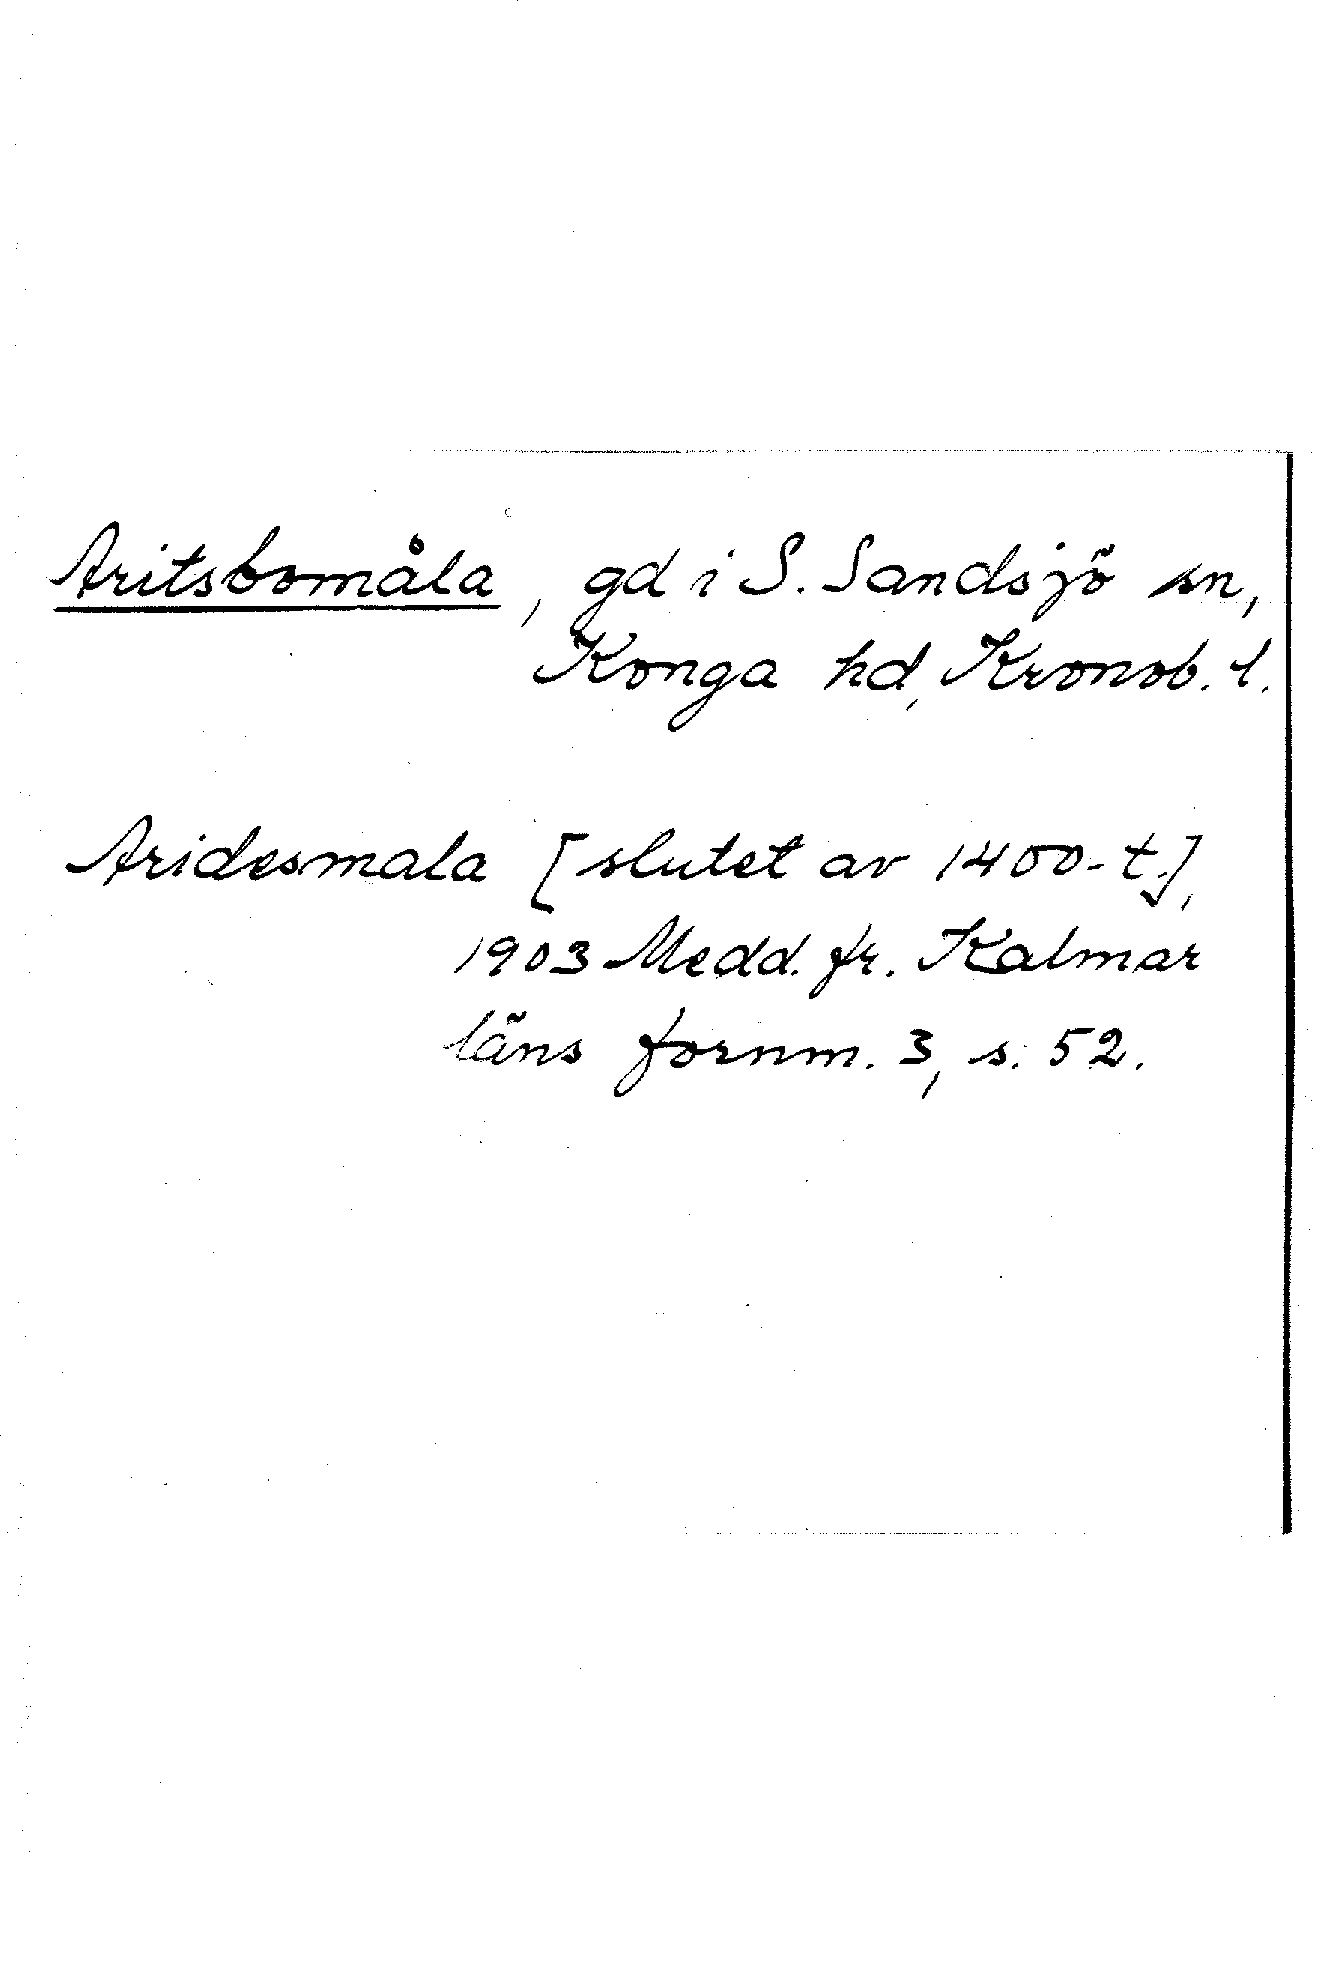 Aritsbomåla, gd i S. Sandsjö sn,
Konga hd, Kronob. l.
Aridesmala [slutet av 1400-t.],
1903 Medd. fr. Kalmar
läns fornm. 3, s. 52.